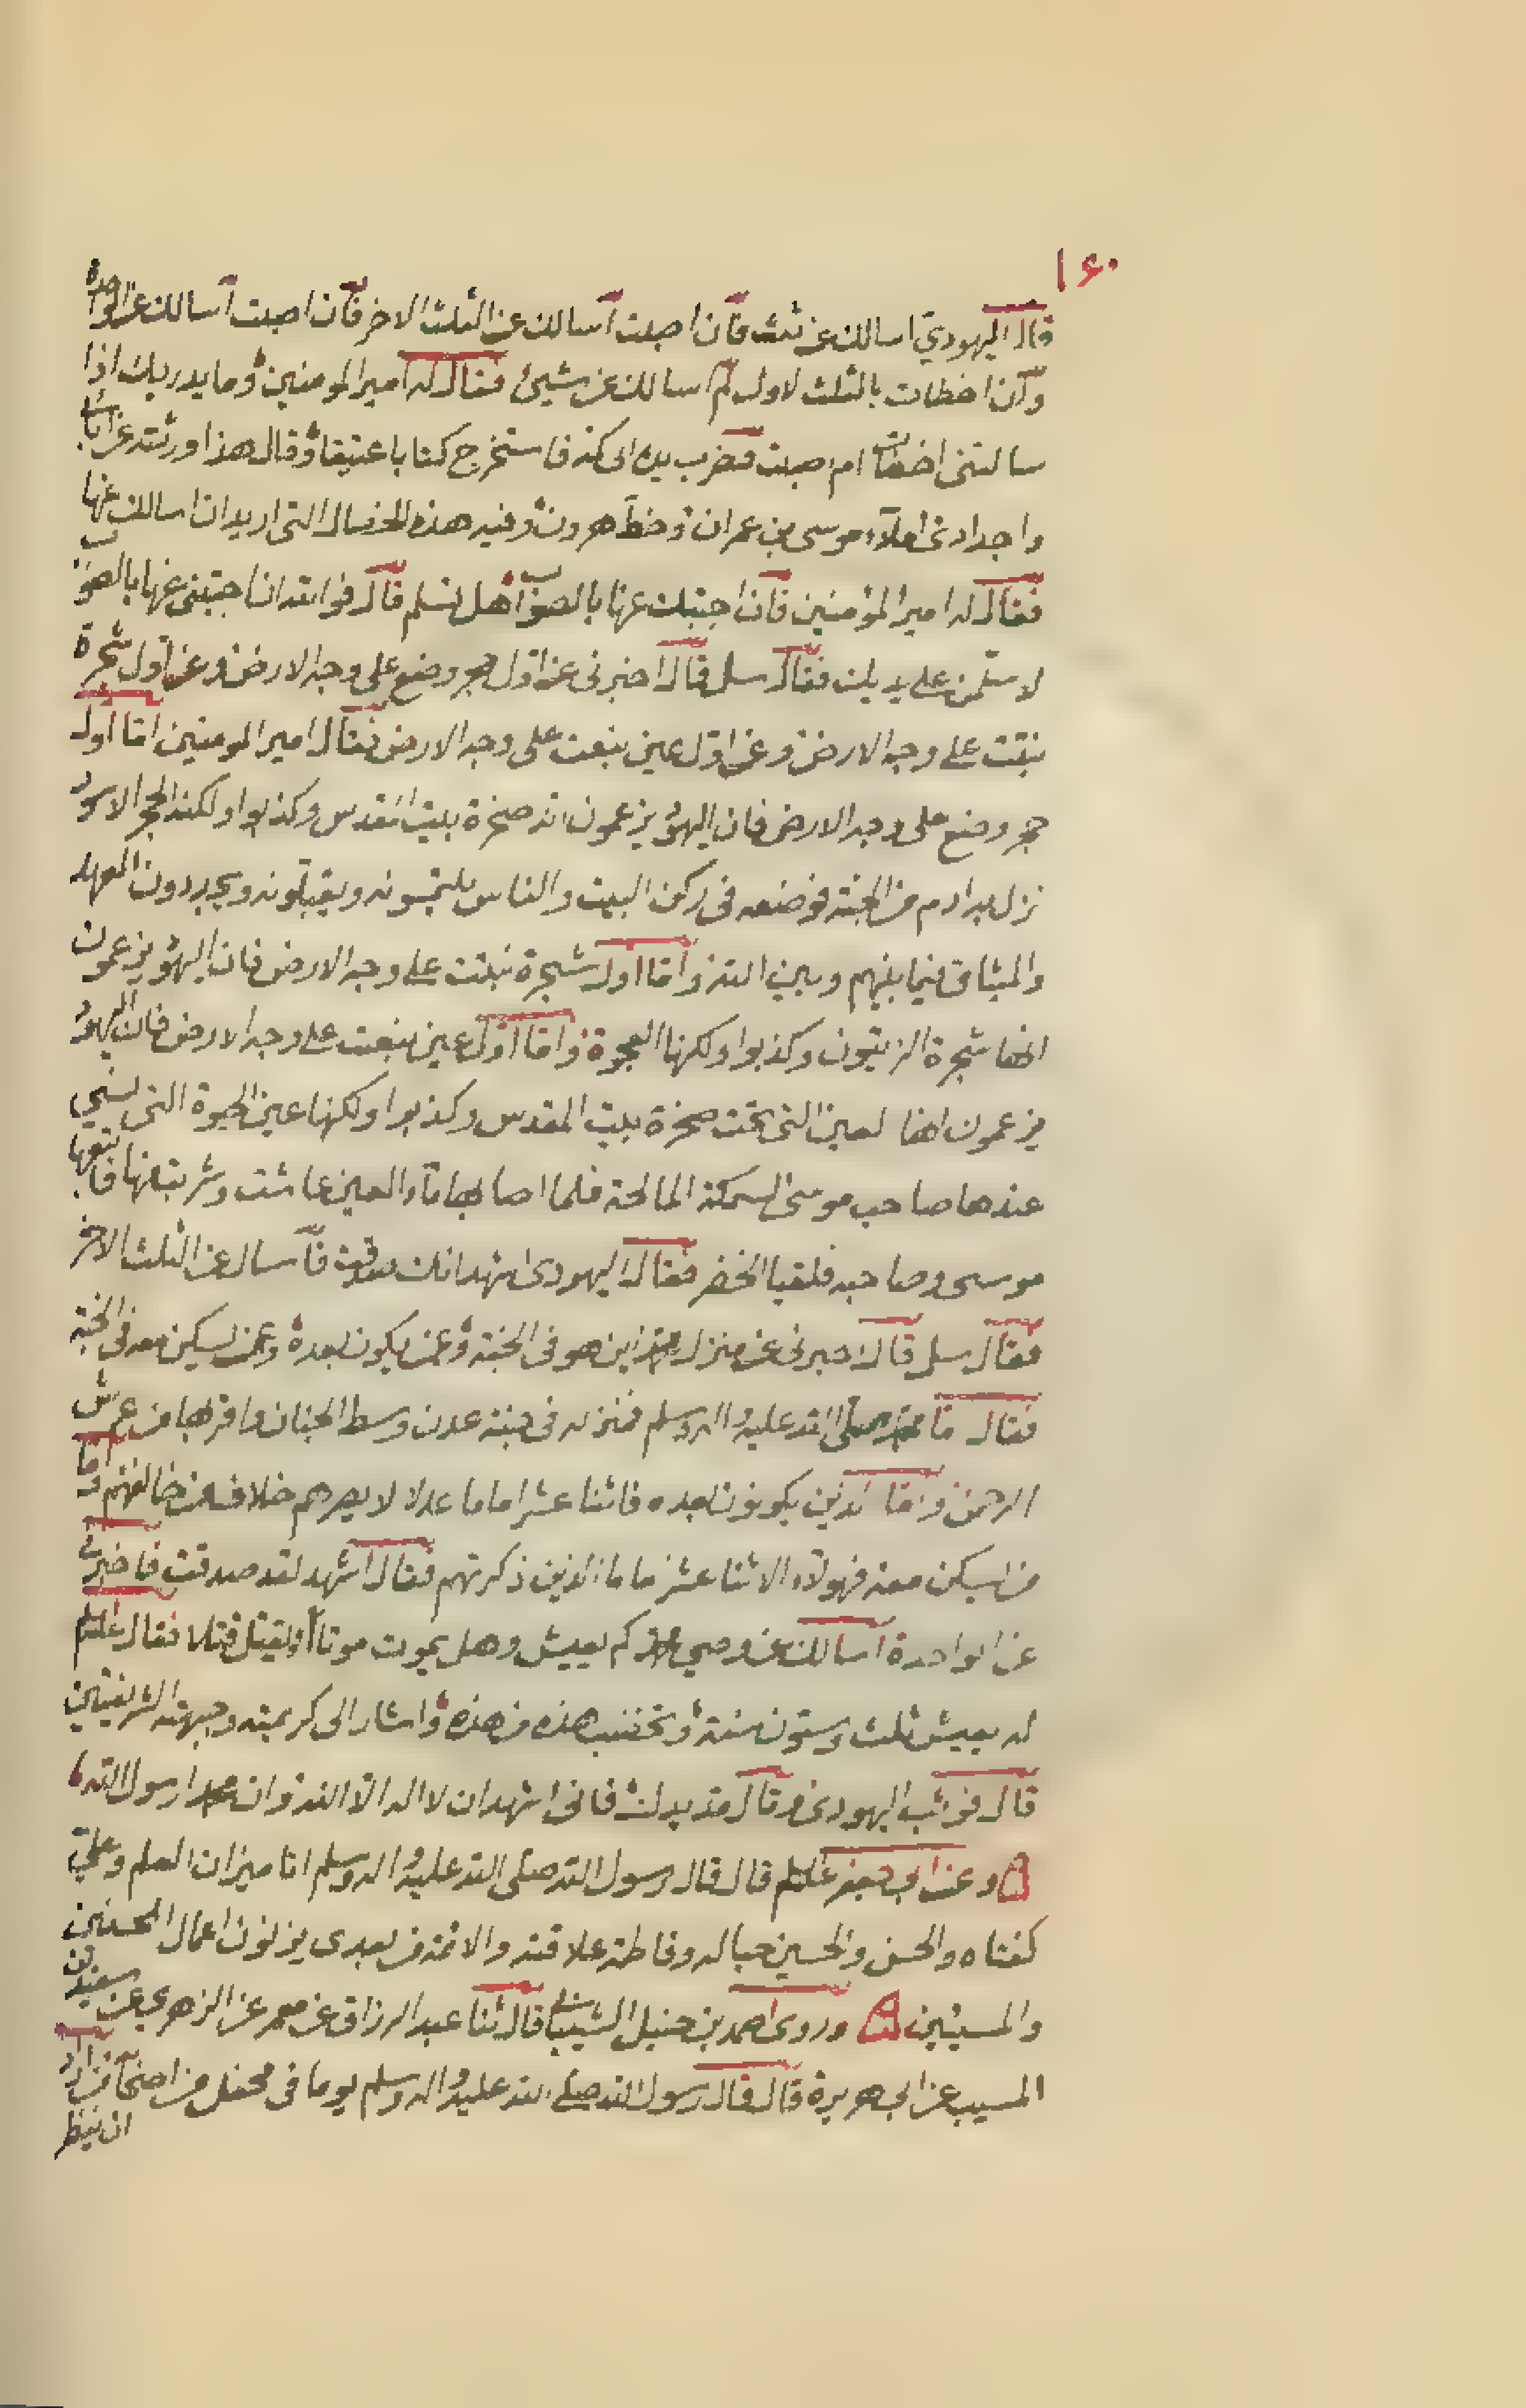 ١٤٠
قال اليهودي اسالك عن ثلث فان اصبت اسالك عن الثلث الاخر فان اصبت اسالك عن الواحدة
وان اخطات بالثلث الاول لم اسالك عن شيئ فقال له امير المومنين وما يدريك اذا
سالتنى اخطات ام اصبت فضرب يده الى كمه فاستخرج كتابا عتيقا وقال هذا ورثته عن آبائى
واجدادى املاء موسى بن عمران وخط هرون وفيه هذه الخصال التى اريد ان اسالك عنها
فقال له امير المؤمنين فان اجبتك عنها بالصواب هل تسلم قال فوالله ان اجبتنى عنها بالصواب
لاسلمن على يديك فقال سل قال اخبرنى عن اول حجر وضع على وجه الارض وعن اول شجرة
نبتت على وجه الارض وعن اول عين نبعت على وجه الارض فقال امير المومنين اما اول
حجر وضع على وجه الارض فان اليهود يزعمون انه صخرة بيت المقدس وكذبوا ولكنه الحجر الاسود
نزل به ادم من الجنة فوضعه فى ركن البيت والناس يلتمسونه ويقبلونه ويجددون العهد
والميثاق فيما بينهم وبين الله واما اول شجرة نبتت على وجه الارض فان اليهود يزعمون
انها شجرة الزيتون وكذبوا ولكنها العجوة واما اول عين نبعت على وجه الارض فان اليهود
يزعمون انها لعين التى تحت صخرة بيت المقدس وكذبوا ولكنها عين الحيوة التى نسى
عندها صاحب موسى السمكة المالحة فلما اصابها ماء العين عاشت وشربت منها فاتبعها
موسى وصاحبه فلقيا الخضر فقال اليهودى اشهد انك صدقت فاسال عن الثلث الاخر
فقال سل قال اخبرنى عن منزل محمد اين هو فى الجنة وعمن يكون بعده وعمن يسكن معه فى الجنة
فقال اما محمد صلى الله عليه واله وسلم فمنزله فى جنة عدن وسط الجنان واقربها من عرش
الرحمن واما الذين يكونون بعده فاثنا عشر اماما عدلا لا يضرهم خلاف من خالفهم واما
من يسكن معه فهولاء الاثنا عشر اماما الذين ذكرتهم فقال اشهد لقد صدقت فاخبرنى
عن الواحدة اسالك عن وصى محمد كم يعيش وهل يموت موتا او يقتل قتلا فقال عليه السلم
له يعيش ثلث وستون سنة وتخضب هذه من هذه واشار الى كريمته وجبهته الشريفتين
قال فوثب اليهودى وقال مد يدك فانى اشهد ان لا اله الا الله وان محمدا رسول الله
وعن ابى جعفر عليه السلم قال قال رسول الله صلى الله عليه واله وسلم انا ميزان العلم وعلى
كفتاه والحسن والحسين حباله وفاطمة علاقته والائمة من بعدى يزنون اعمال المحسنين
والمسيئين وروى احمد بن حنبل الشيبانى قال ثنا عبد الرزاق عن معمر عن الزهرى عن سعيد بن
المسيب عن ابى هريرة قال قال رسول الله صلى الله عليه واله وسلم يوما فى محفل من اصحابه من اراد
ان ينظر